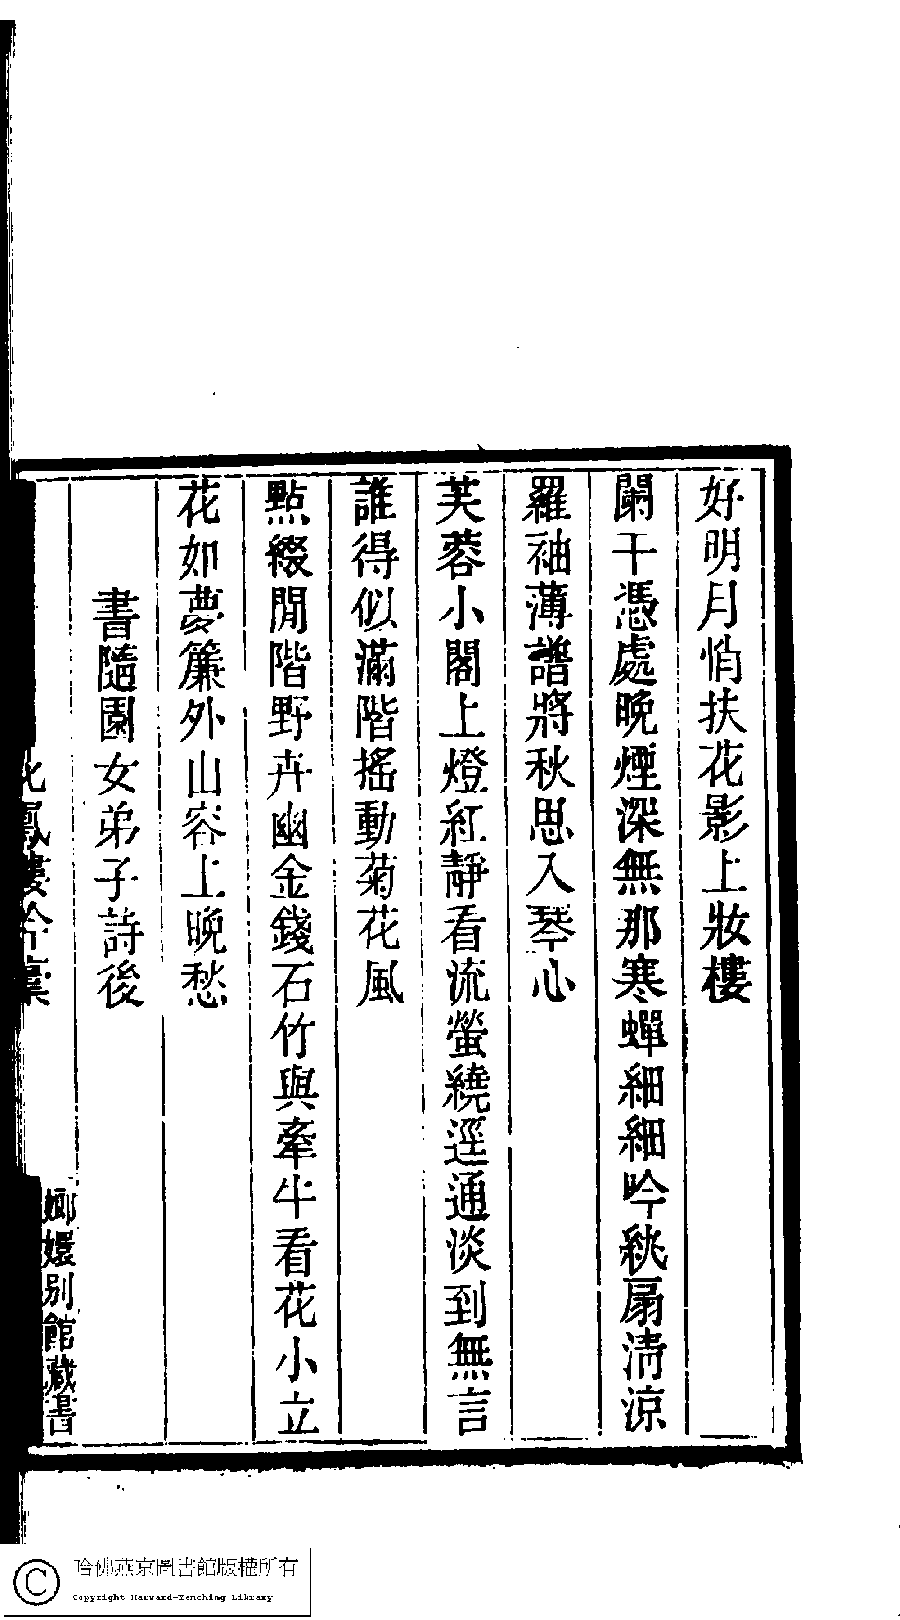 好明月悄扶花影上妝樓
闌干憑處晚煙深無那寒蟬細細吟紈扇清涼
羅袖薄譜將秋思入琴心
芙蓉小閣上燈紅靜看流螢繞逕通淡到無言
誰得似滿階搖動菊花風
點綴閒階野卉幽金錢石竹與牽牛看花小立
花如夢簾外山容上晚愁
書隨園女弟子詩後
鳳樓吟稾
嫏嬛別館藏書
哈佛燕京圖書館版權所有
Copyright Harvard-Yenching Library